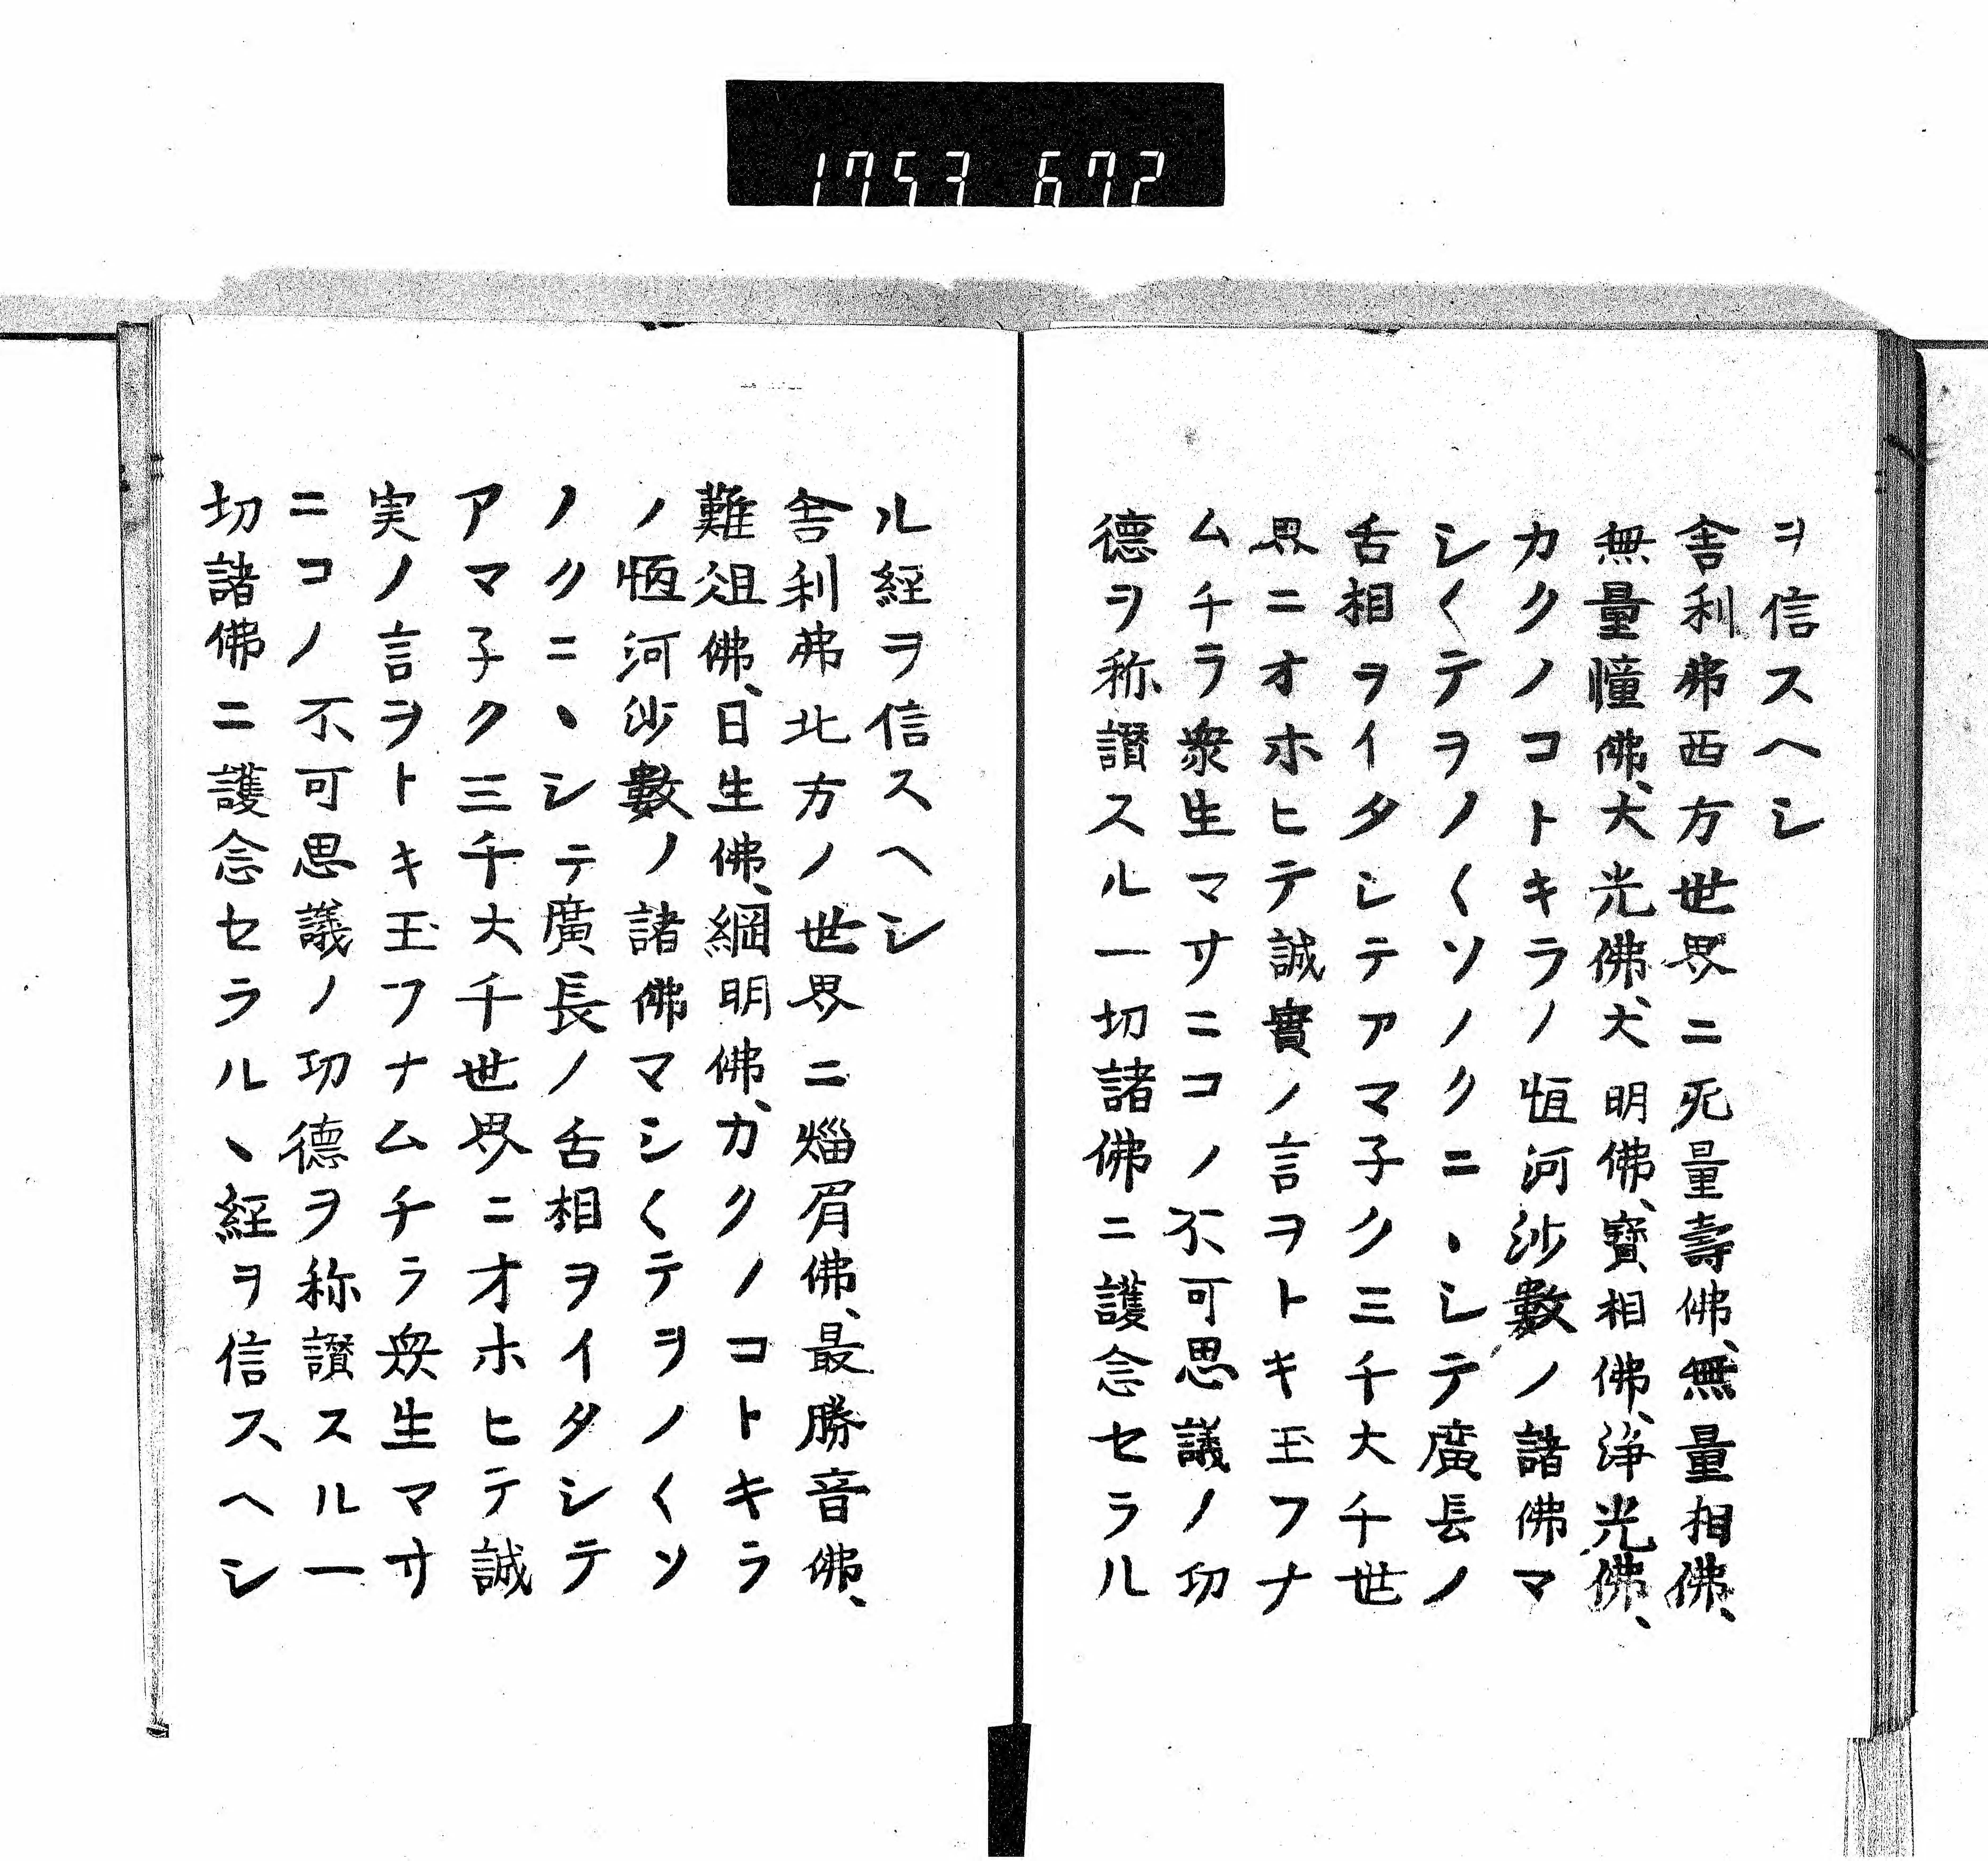 1753 672
ヲ信スヘシ
舎利弗西方世界ニ無量壽佛、無量相佛、
無量幢佛、大光佛、大明佛、寶相佛、浄光佛、
カクノコトキラノ恒河沙數ノ諸佛マ
シ〱テヲノ〱ソノクニヽシテ廣長ノ
舌相ヲイタシテアマ子ク三千大千世
界ニオホヒテ誠實ノ言ヲトキ玉フナ
ムチラ衆生マサニコノ不可思議ノ功
德ヲ称讃スル一切諸佛ニ護念セラル
ル経ヲ信スヘシ
舎利弗北方ノ世界ニ焔肩佛、最勝音佛、
難沮佛、日生佛、網明佛、カクノコトキラ
ノ恒河沙數ノ諸佛マシ〱テヲノ〱ソ
ノクニヽシテ廣長ノ舌相ヲイタシテ
アマ子ク三千大千世界ニオホヒテ誠
実ノ言ヲトキ玉フナムチラ衆生マサ
ニコノ不可思議ノ功德ヲ称讃スル一
切諸佛ニ護念セラルヽ経ヲ信スヘシ